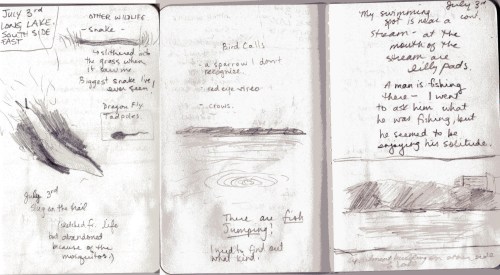 JULY 3rd
LONG LAKE.
SOUTH SIDE
EAST
OTHER WILDLIFE
- Snake -
slithered into
the grass when
it saw me.
Biggest snake I've
ever seen
Dragon Fly
Tadpoles.
July 3rd
Slug on the trail
(sketched fr. life
but abandoned
because of the
mosquitos.)
Bird Calls
- a sparrow I don't
recognize.
- red eye vireo
- crows.
There are fish
Jumping!
I tried to find out
what kind.
July 3rd
My swimming
spot is near a
stream - at the
mouth of the
stream are
lilly pads.
A man is fishing
there - I went
to ask him what
he was fishing, but
he seemed to be
enjoying his solitude.